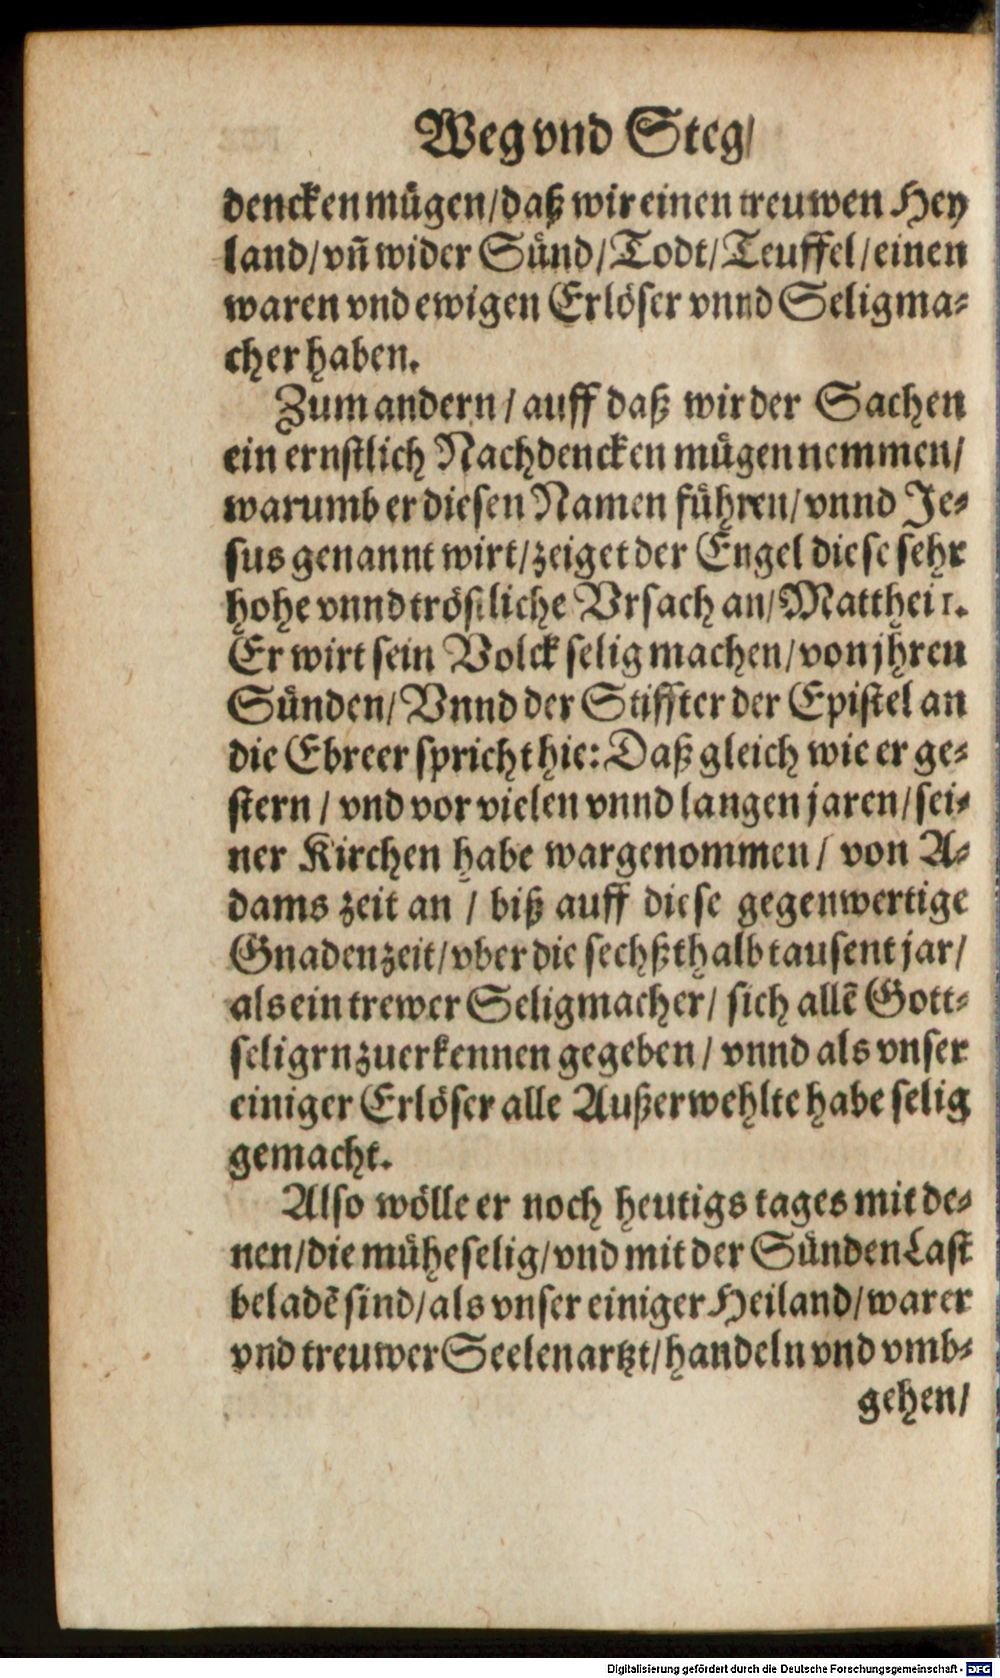 Weg vnd Steg/
dencken mügen/daß wir einen treuwen Hey
land/vñ wider Sünd/Todt/Teuffel/einen
waren vnd ewigen Erlöser vnnd Seligma-
cher haben.
Zum andern/auff daß wir der Sachen
ein ernstlich Nachdencken mügen nemmen/
warumb er diesen Namen führen/vnnd Je-
sus genannt wirt/zeiget der Engel diese sehr
hohe vnnd tröstliche Vrsach an/Matthei 1.
Er wirt sein Volck selig machen/von jhren
Sünden/Vnnd der Stiffter der Epistel an
die Ebreer spricht hie: Daß gleich wie er ge-
stern/vnd vor vielen vnnd langen jaren/sei-
ner Kirchen habe wargenommen/von A-
dams zeit an/biß auff diese gegenwertige
Gnadenzeit/vber die sechßthalb tausent jar/
als ein trewer Seligmacher/sich allẽ Gott-
seligrn zuerkennen gegeben/vnnd als vnser
einiger Erlöser alle Außerwehlte habe selig
gemacht.
Also wölle er noch heutigs tages mit de-
nen/die müheselig/vnd mit der Sünden Last
beladẽ sind/als vnser einiger Heiland/warer
vnd treuwer Seelenartzt/handeln vnd vmb-
gehen/
Digitalisierung gefördert durch die Deutsche Forschungsgemeinschaft - DFG